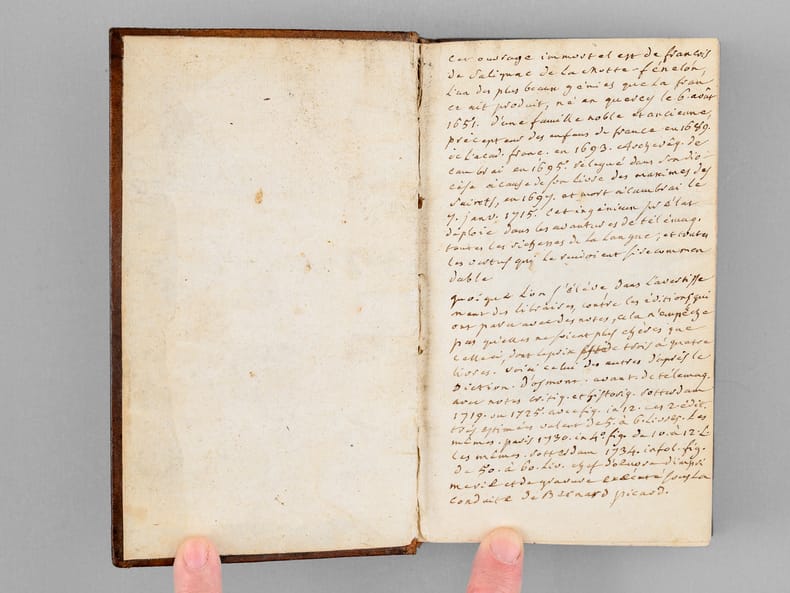 cet ouvrage immortel est de françois
de Salignac de La Motte-fénelon,
L'un des plus beaux génies que La fran
ce ait produit, né en quercy le 6. août
1651. d'une famille noble et ancienne,
précepteur des enfans de france en 1689.
de L'acad. franc. en 1693. Archevêq. de
cambrai en 1695. relegué dans son dio
cèse à cause de son Livre des maximes des
saints, en 1697. et mort à cambrai le
7. janv. 1715. Cet ingénieux prélat
déploie dans les avantures de télémaq.
toutes les richesses de la Langue, et toutes
les vertus qui le rendoient si recommen
dable
quoique L'on s'élève dans L'avertisse
ment des libraires, contre les éditions qui
ont paru avec des notes, cela n'empêche
pas qu'elles ne soient plus chères que
celle ci, dont le prix est de trois à quatre
livres. voici celui des autres d'après le
Diction. D'osmont. avant. de télémaq.
avec notes critiq. et historiq. rotterdam
1719. ou 1725. avec fig. in 12. ces 2 édit.
très estimées valent de 5. à 6. Livres. Les
mêmes. paris 1730. in 4° fig. de 10. à 12. L
Les mêmes. rotterdam 1734. in fol. fig.
de 50. à 60. Liv. chef d'oeuvre d'impri
merie et de gravure exécuté sous la
conduite de Bernard picard.